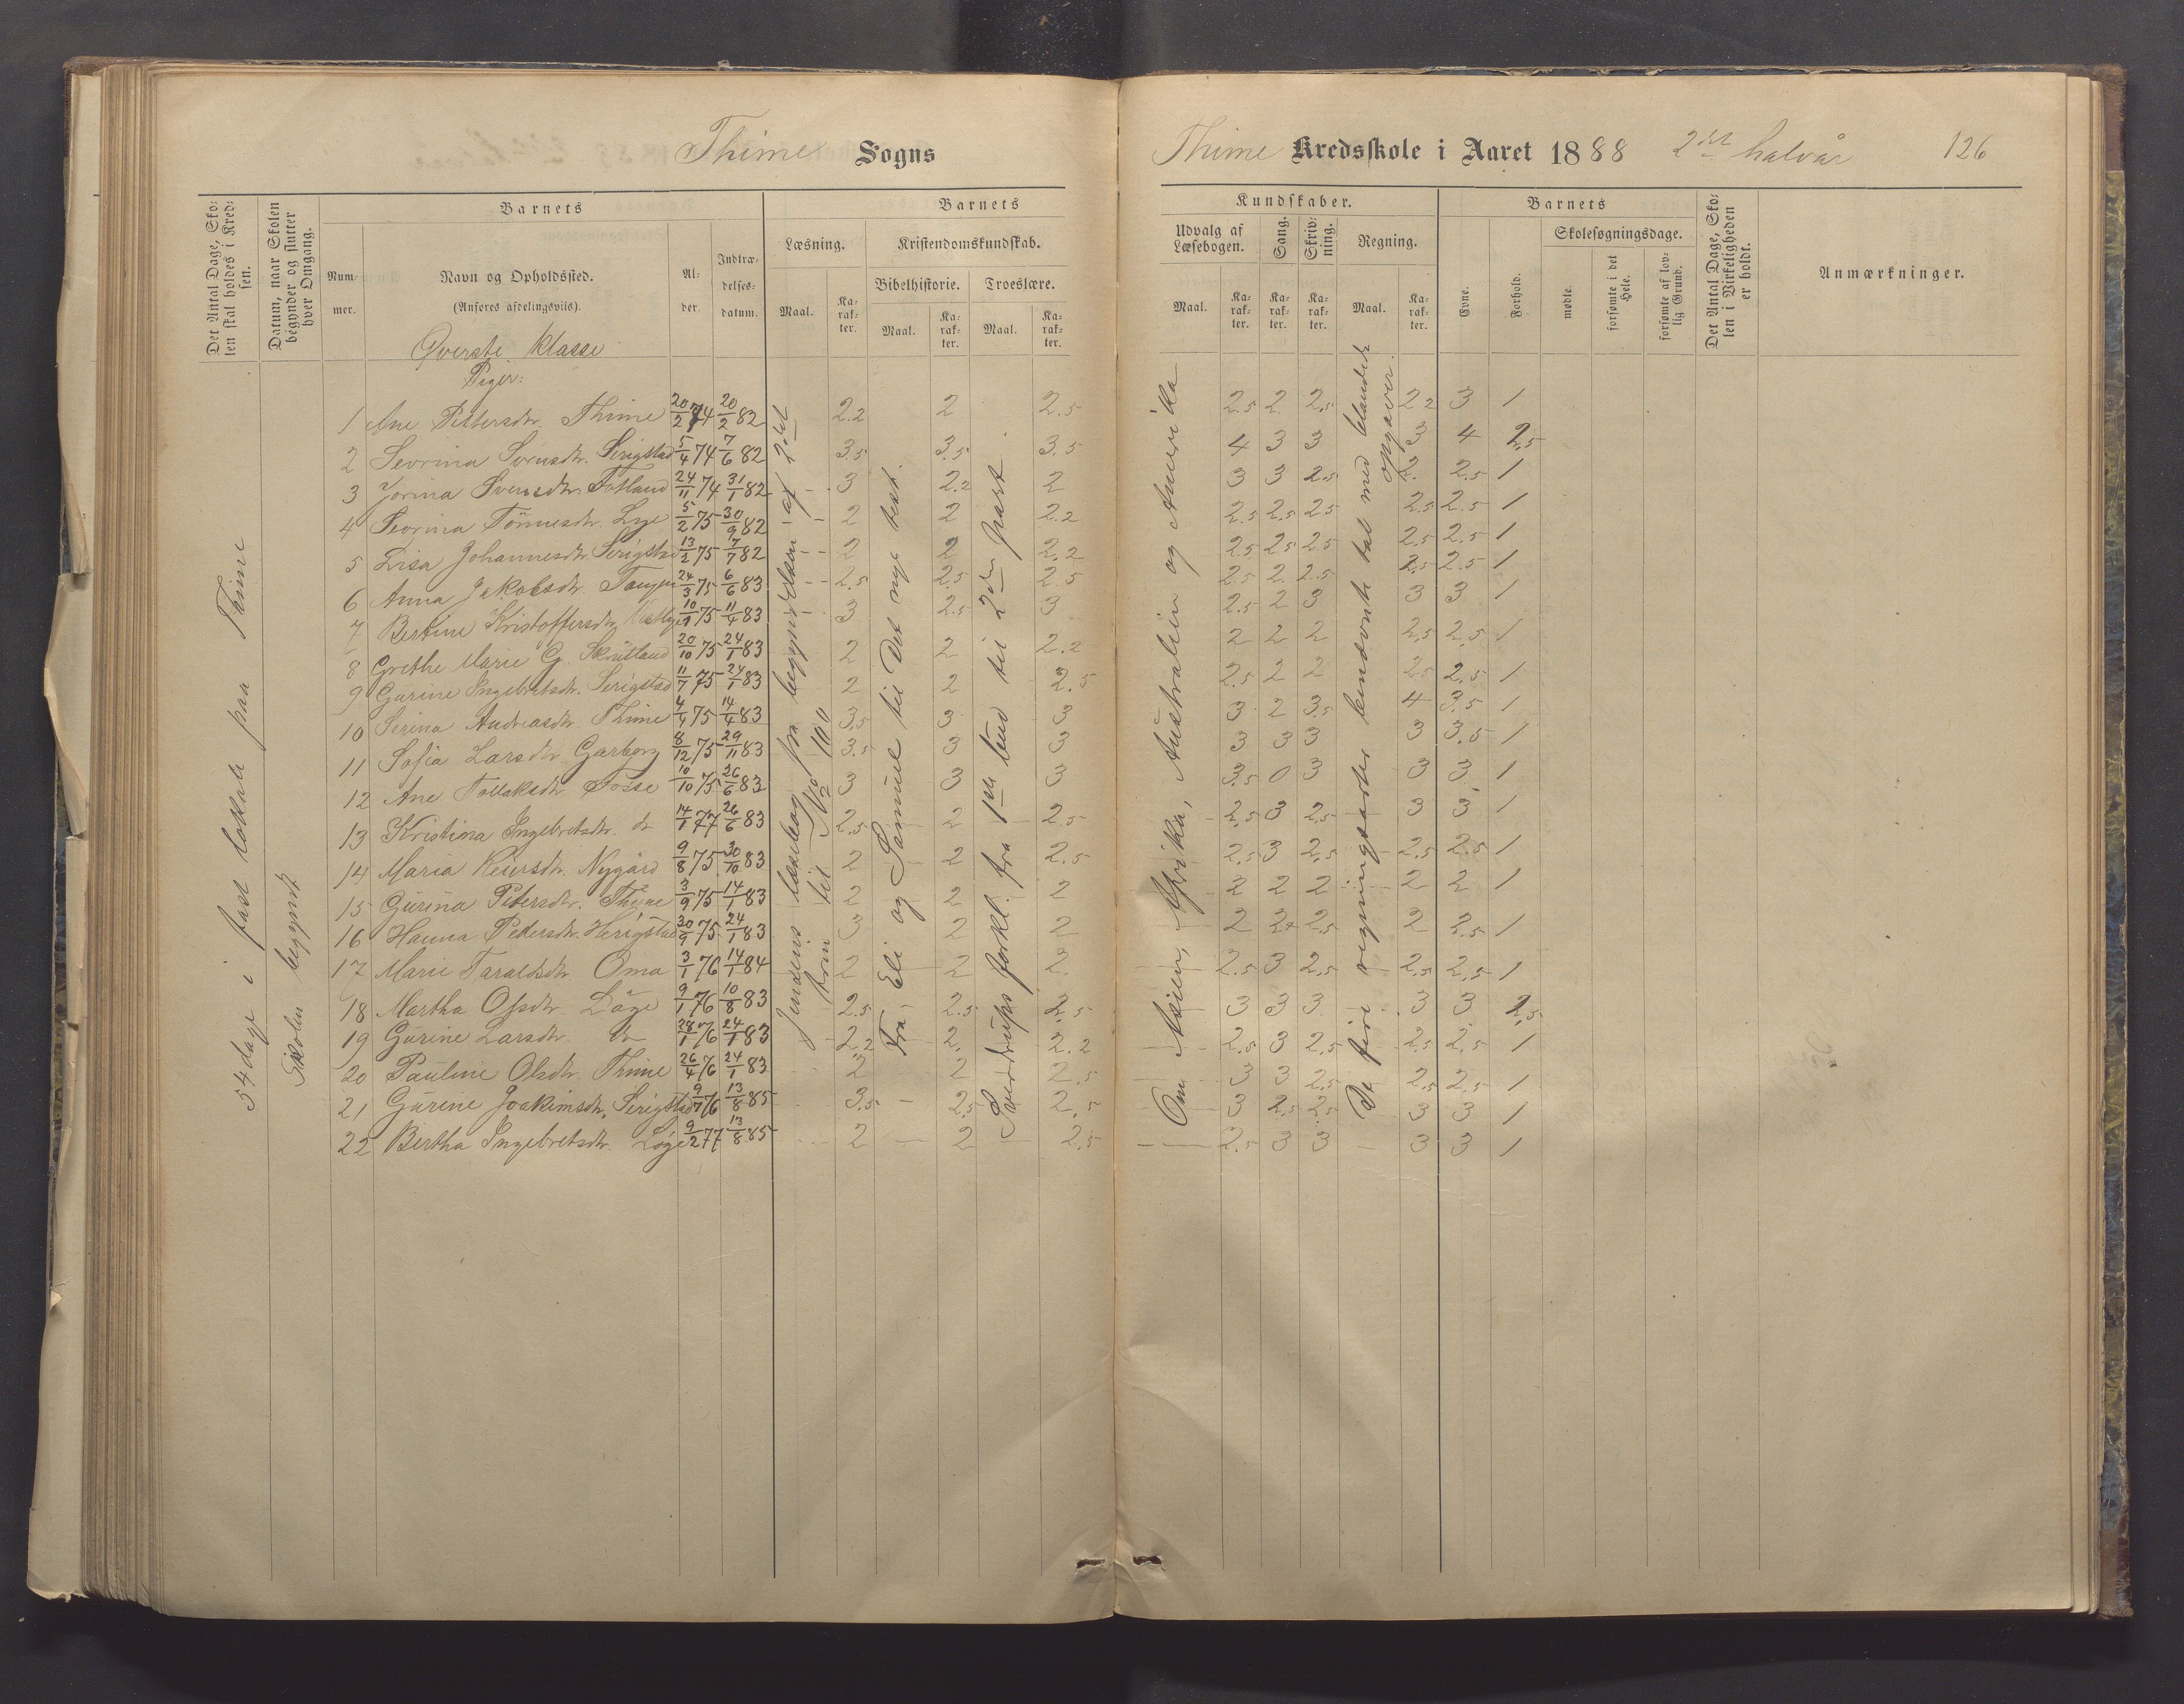 Thime Sogns
Thime Kredsskole i Aaret 1888 2det halvår 126
Det Antal Dage, Sko-
len skal holdes i Kred-
sen.
Datum, naar Skolen
begynder og slutter
hver Omgang.
Barnets
Num-
mer.
Navn og Opholdssted.
(Anføres afdelingsvis).
Al-
der.
Indtræ-
delses-
datum.
Barnets
Læsning.
Maal.
Ka-
rak-
ter.
Kristendomskundskab.
Bibelhistorie.
Maal.
Ka-
rak-
ter.
Troeslære.
Maal.
Ka-
rak-
ter.
Kundskaber.
Udvalg af
Læsebogen.
Maal.
Ka-
rak-
ter.
Sang.
Ka-
rak-
ter.
Skriv-
ning.
Ka-
rak-
ter.
Regning.
Maal.
Ka-
rak-
ter.
Barnets
Evne.
Forhold.
Skolesøgningsdage.
mødte.
forsømte i det
Hele.
forsømte af lov-
lig Grund.
Det Antal Dage, Sko-
len i Virkeligheden
er holdt.
Anmærkninger.
54 dage i fast lokale paa Thime
Skolen begyndt
Øverste Klasse
Piger:
Jensens læsebog fra begyndelsen af 2det
trin til No 100
Fra Eli og Samuel til Det nye test.
Sverdrups forkl. fra 1ste bud til 2den part
Om Asien, Afrika, Australien og Amerika
De fire regningsarter benævnte tal med blandede
opgaver.
1 Ane Pettersdtr. Thime 20/2 74 20/2 82 2.2 2 2.5 2.5 2. 2.5 2.2 3 1
2 Sevrina Svensdtr. Serigstad 5/4 74 7/6 82 3.5 3.5 3.5 4 3 3 3 4 2.5
3 Jorina Svensdtr. Fotland 24/11 74 31/1 82 3 2.2 2 3 3 2.5 2. 2.5 1
4 Sevrina Tönnesdtr. Lye 5/2 75 30/9 82 2 2 2.2 2.5 2.5 2.5 2.5 2.5 1
5 Lisa Johannesdtr. Serigstad 13/2 75 7/7 82 2 2 2.2 2.5 2.5 2.5 2.5 2.5 1
6 Anna Jakobsdtr. Tangen 24/3 75 6/6 83 2.5 2.5 2.5 2.5 2. 2.5 2.5 2.5 1
7 Bertine Kristoffersdtr. 75 11/4 83 3 2.5 3 2.5 2 3 3 3 1
8 Grethe Marie G. Skrütland 20/10 75 24/1 83 2 2 2.2 2 2 2 2.5 2.5 1
9 Gurine Ingebretsdtr. Serigstad 11/7 75 24/1 83 2 2 2.5 2.5 2 2 2.5 2.5 1
10 Serina Andreasdtr. Thime 4/4 75 14/4 83 3.5 3 3 3 2 3.5 4 3.5 1
11 Sofia Larsdtr. Garborg 8/12 75 29/11 83 3.5 3 3 3 3 3 3 3.5 1
12 Ane Tollaksdtr. Fosse 10/10 75 26/6 83 3 3 3 3.5 0 3 3 3 1
13 Kristina Ingebretsdtr. do 14/1 77 26/6 83 2.5 2 2.5 2.5 3 2.5 3 3 1
14 Maria Reiersdtr. Nygård 9/8 75 30/10 83 2 2 2.5 2.5 3 2.5 2.5 2.5 1
15 Gurina Petersdtr. Thime 3/9 75 14/1 83 2 2 2 2 2 2 2 2 1
16 Hanna Pedersdtr. Herigstad 30/9 75 24/1 83 3 2 2 2 2+ 2.5 2 2.5 1
17 Marie Taraldsdtr. Oma 3/1 76 14/1 84 2 2 2. 2.5 3 2.5 2.5 2.5 1
18 Martha Olsdtr. Löge 9/1 76 10/8 83 2.5 2.5 2.5 3 3 3 3 3 2.5
19 Gurine Larsdtr. do 28/1 76 24/1 83 2.2 2. 2.2 2.5 3 2.5 2.5 2.5 1
20 Pauline Olsdtr. Thime 26/4 76 24/1 83 2 2 2.5 3 3 2.5 2.5 2.5 1
21 Gurine Joakimsdtr. Serigstad 9/7 76 13/8 85 3.5 2.5 2.5 3 2.5 2.5 3 3 1
22 Bertha Ingebretsdtr. Löge 9/2 77 13/8 85 2 2 2.5 2.5 3 3 3 3 1